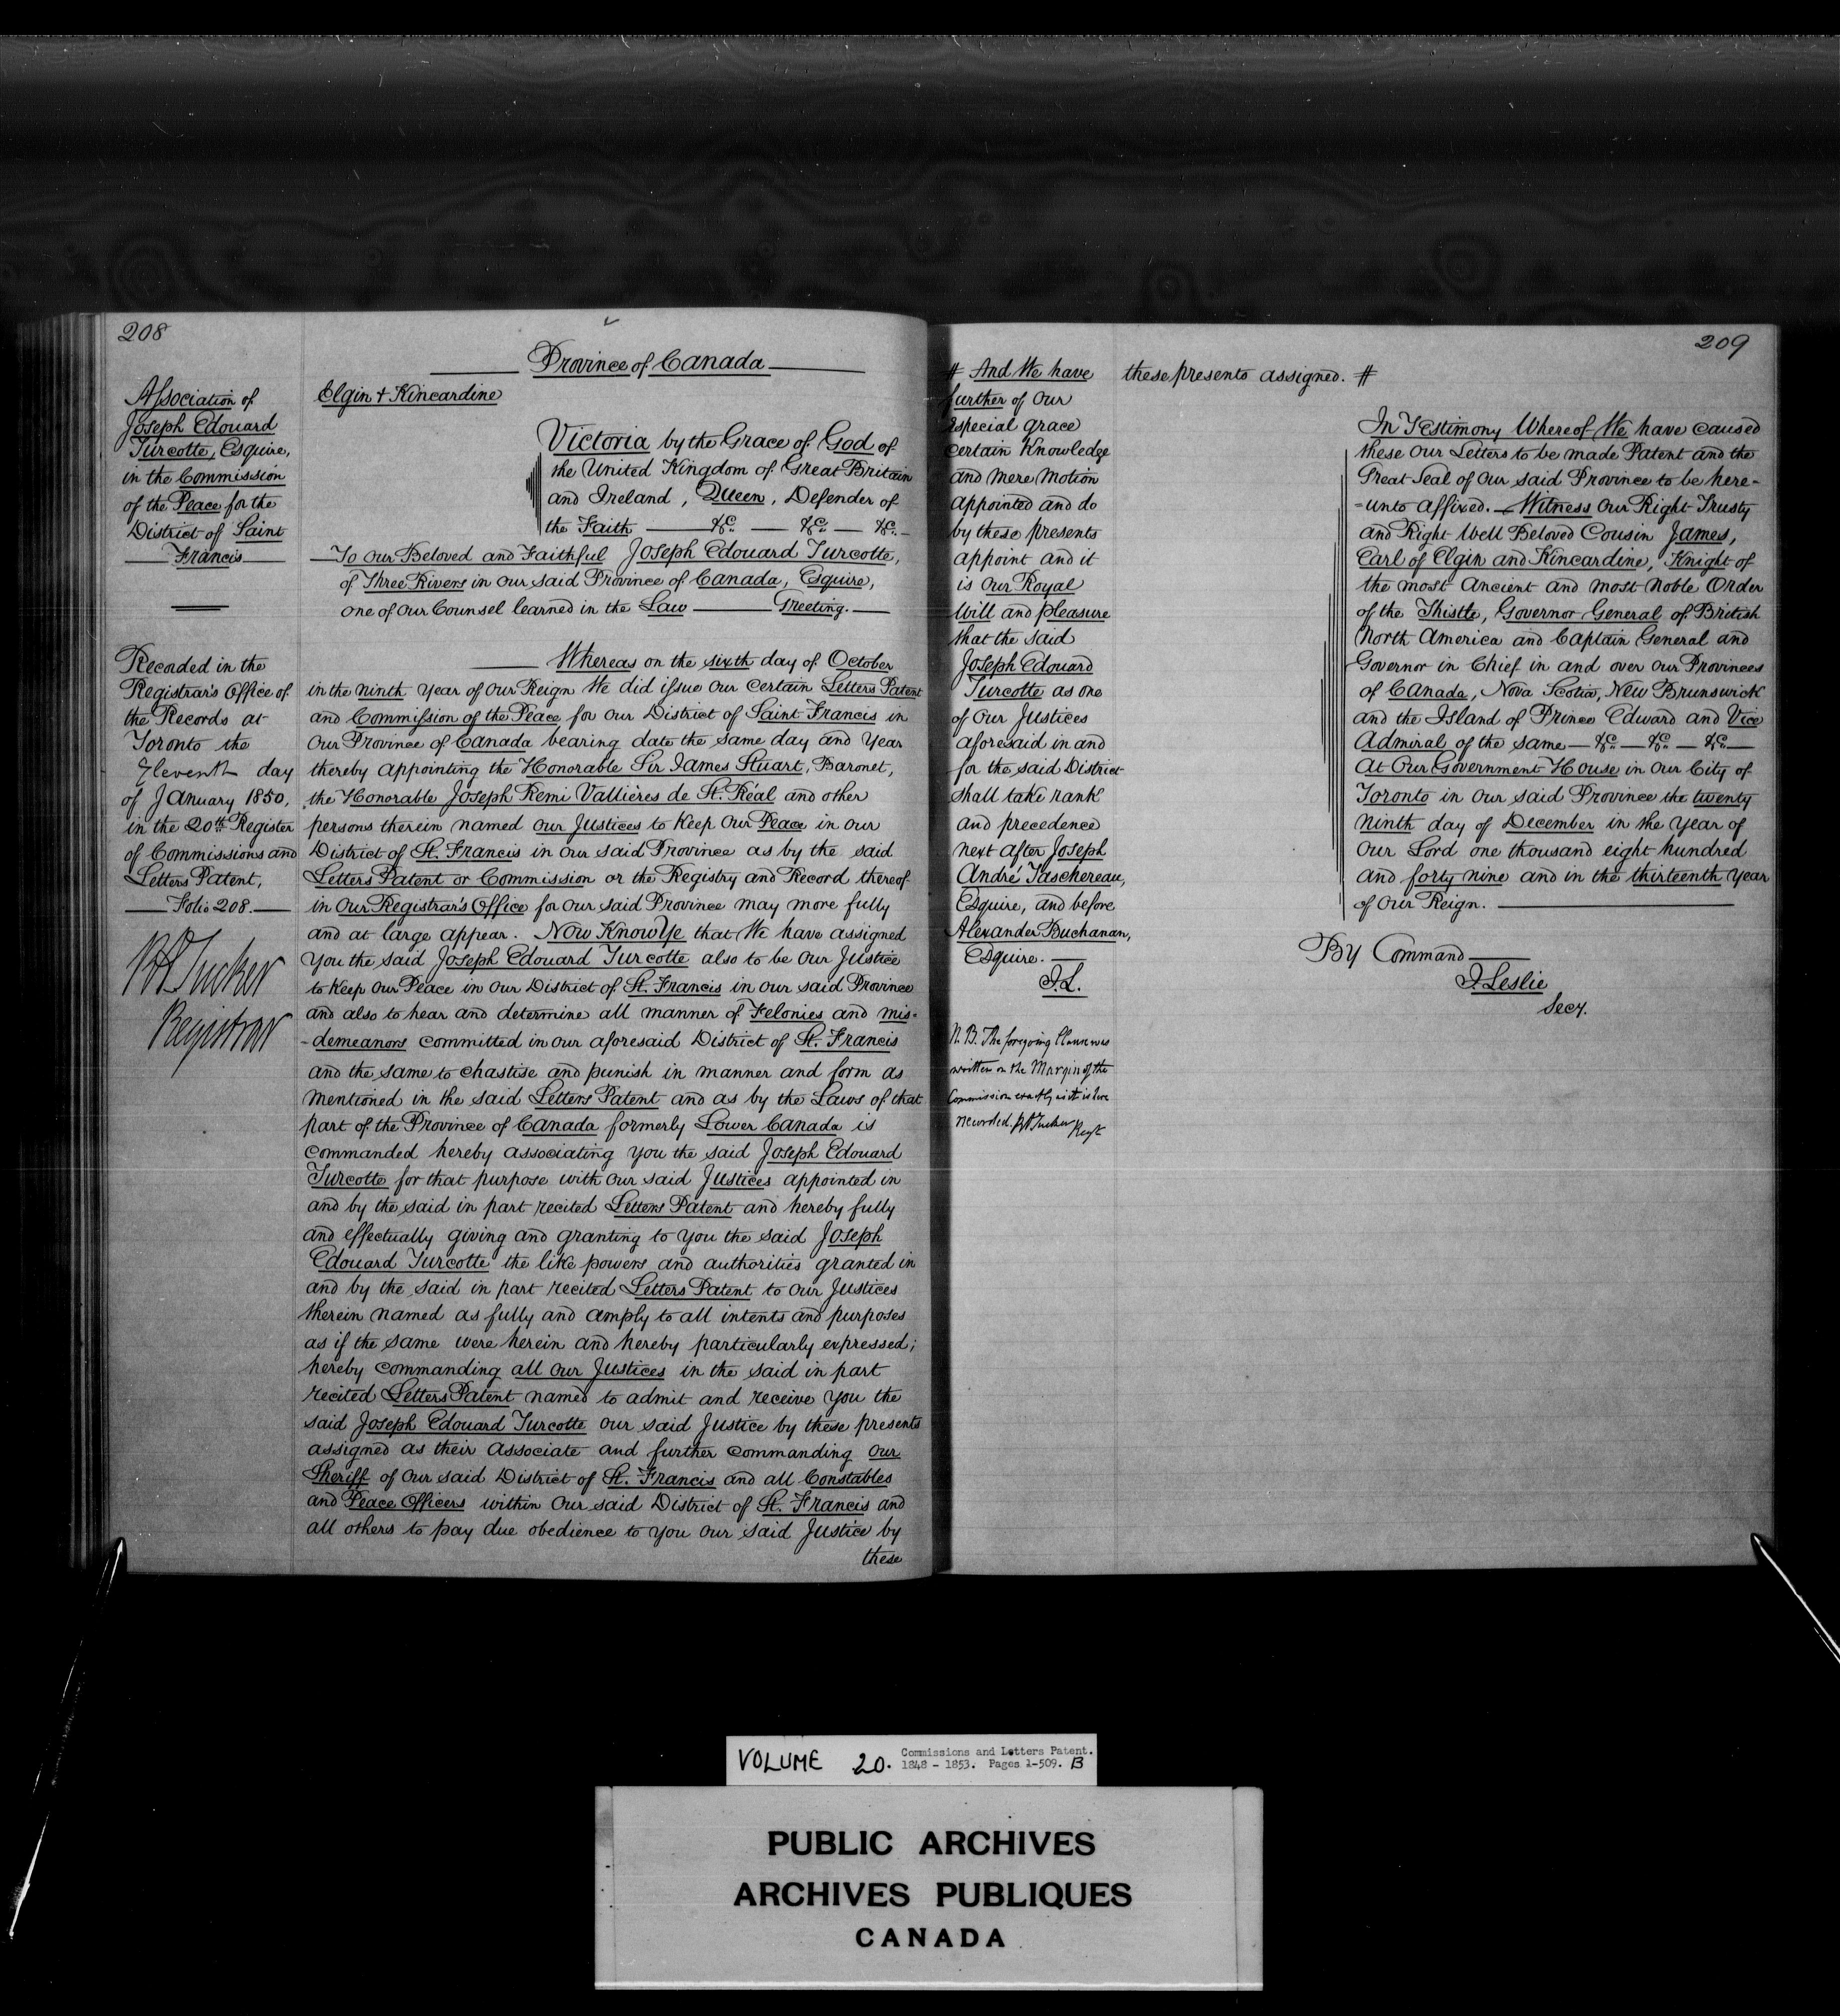 208
Association of
Joseph Edouard
Turcotte, Esquire,
in the Commission
of the Peace for the
District of Saint
Francis
Recorded in the
Registrar's Office of
the Records at
Toronto the
Eleventh day
of January 1850,
in the 20th Register
of Commissions and
Letters Patent,
Folio 208.
RA Tucker
Registrar
Province of Canada
Elgin & Kincardine
Victoria by the Grace of God of
the United Kingdom of Great Britain
and Ireland, Queen, Defender of
the Faith — &c. — &c. — &c. —
To Our Beloved and Faithful Joseph Edouard Turcotte,
of Three Rivers in our said Province of Canada, Esquire,
one of Our Counsel learned in the Law — Greeting. —
Whereas on the sixth day of October
in the ninth year of Our Reign We did issue Our certain Letters Patent
and Commission of the Peace for Our District of Saint Francis in
Our Province of Canada bearing date the same day and year
thereby appointing the Honorable Sir James Stuart, Baronet,
the Honorable Joseph Remi Vallières de St. Réal and other
persons therein named Our Justices to keep Our Peace in our
District of St. Francis in our said Province as by the said
Letters Patent or Commission or the Registry and Record thereof
in Our Registrar's Office for Our said Province may more fully
and at large appear. Now Know Ye that We have assigned
you the said Joseph Edouard Turcotte also to be Our Justice
to keep Our Peace in Our District of St. Francis in our said Province
and also to hear and determine all manner of Felonies and mis=
-demeanors committed in our aforesaid District of St. Francis
and the same to chastise and punish in manner and form as
mentioned in the said Letters Patent and as by the Laws of that
part of the Province of Canada formerly Lower Canada is
commanded hereby associating you the said Joseph Edouard
Turcotte for that purpose with our said Justices appointed in
and by the said in part recited Letters Patent and hereby fully
and effectually giving and granting to you the said Joseph
Edouard Turcotte the like powers and authorities granted in
and by the said in part recited Letters Patent to Our Justices
therein named as fully and amply to all intents and purposes
as if the same were herein and hereby particularly expressed;
hereby commanding all Our Justices in the said in part
recited Letters Patent named to admit and receive you the
said Joseph Edouard Turcotte our said Justice by these presents
assigned as their Associate and further commanding Our
Sheriff of Our said District of St. Francis and all Constables
and Peace Officers within Our said District of St. Francis and
all others to pay due obedience to you Our said Justice by
these
209
# And We have
further of Our
especial grace
certain Knowledge
and mere Motion
appointed and do
by these presents
appoint and it
is Our Royal
Will and pleasure
that the said
Joseph Edouard
Turcotte as one
of Our Justices
aforesaid in and
for the said District
shall take rank
and precedence
next after Joseph
André Taschereau,
Esquire, and before
Alexander Buchanan,
Esquire. —
J.L.
N.B. The foregoing Clause was
written on the Margin of the
Commission exactly as it is here
recorded. RA Tucker Regr
these presents assigned. #
In Testimony Whereof We have caused
these Our Letters to be made Patent and the
Great Seal of Our said Province to be here-
=unto affixed. — Witness Our Right Trusty
and Right Well Beloved Cousin James,
Earl of Elgin and Kincardine, Knight of
the most Ancient and most Noble Order
of the Thistle, Governor General of British
North America and Captain General and
Governor in Chief in and over Our Provinces
of Canada, Nova Scotia, New Brunswick
and the Island of Prince Edward and Vice
Admiral of the same — &c — &c — &c —
At Our Government House in Our City of
Toronto in Our said Province the twenty
ninth day of December in the year of
Our Lord one thousand eight hundred
and forty nine and in the thirteenth year
of Our Reign.
By Command
J. Leslie
Secy.
VOLUME 20. Commissions and Letters Patent.
1848 - 1853. Pages 1-509. B
PUBLIC ARCHIVES
ARCHIVES PUBLIQUES
CANADA